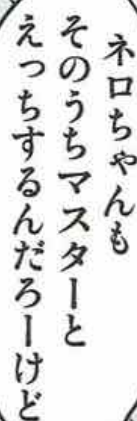 ネロちゃんも
そのうちマスターと
えっちするんだろーけど